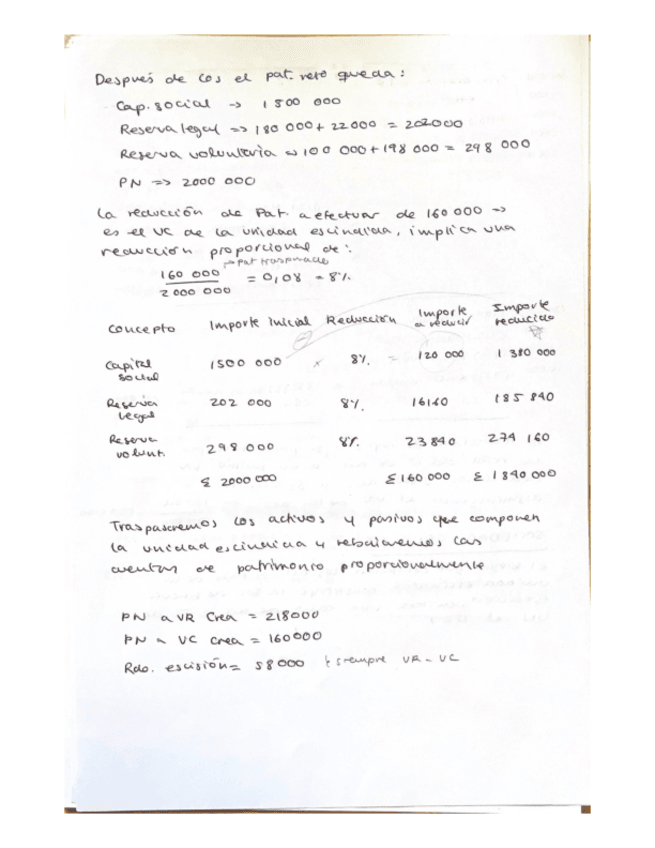 Después de los el pat. neto queda:
Cap. social -> 1 500 000
Reserva legal => 180 000 + 22000 = 202000
Reserva voluntaria => 100 000 + 198 000 = 298 000
PN => 2000 000
La reducción de Pat. a efectuar de 160 000 ->
es el VC de la unidad escindida, implica una
reducción proporcional de:
-> pat traspasado
160 000 / 2 000 000 = 0,08 = 8%
Concepto Importe inicial Reducción Importe a reducir Importe reducido
Capital social 1500 000 x 8% = 120 000 1 380 000
Reserva legal 202 000 8% 16160 185 840
Reserva volunt. 298 000 8% 23840 274 160
Σ 2000 000 Σ 160 000 Σ 1840 000
Traspasaremos los activos y pasivos que componen
la unidad escindida y rebajaremos las
cuentas de patrimonio proporcionalmente
PN a VR Crea = 218000
PN a VC Crea = 160000
Rdo. escisión = 58000 siempre VR - VC